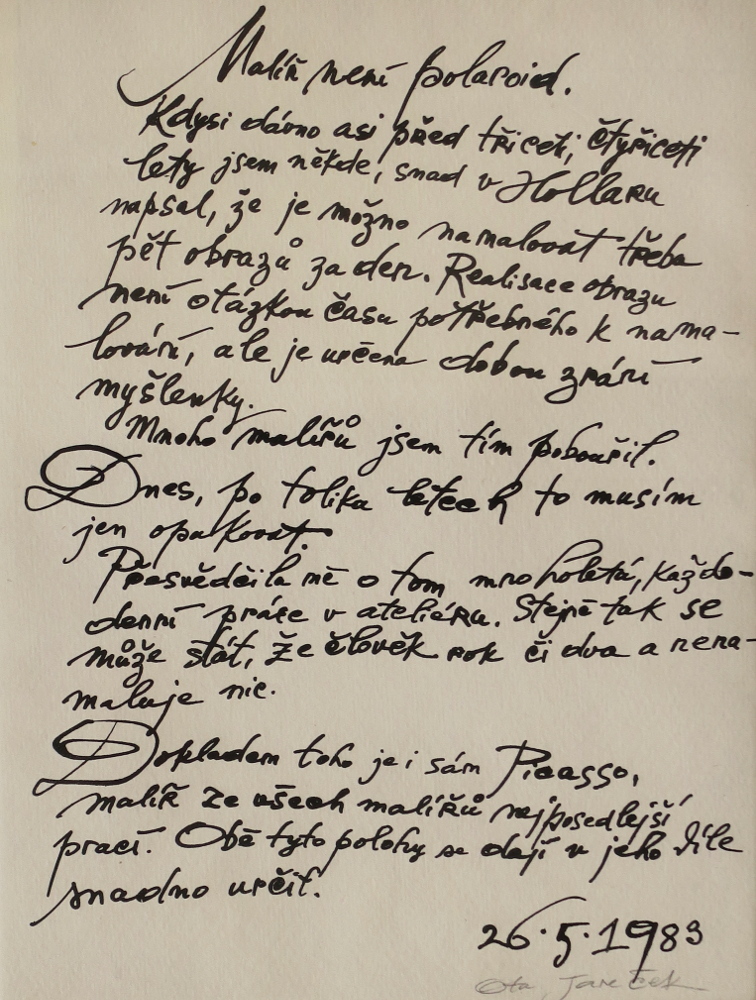 Malíř není polaroid.
Kdysi dávno asi před třiceti, čtyřiceti
lety jsem někde, snad v Hollaru
napsal, že je možno namalovat třeba
pět obrazů za den. Realisace obrazu
není otázkou času potřebného k nama-
lování, ale je určena dobou zrání
myšlenky.
Mnoho malířů jsem tím pobouřil.
Dnes, po tolika letech to musím
jen opakovat.
Přesvědčila mě o tom mnoholetá, každo-
denní práce v ateliéru. Stejně tak se
může stát, že člověk rok či dva a nena-
maluje nic.
Dokladem toho je i sám Picasso,
malíř ze všech malířů nejposedlejší
prací. Obě tyto polohy se dají v jeho díle
snadno určit.
26.5.1983
Ota Janeček